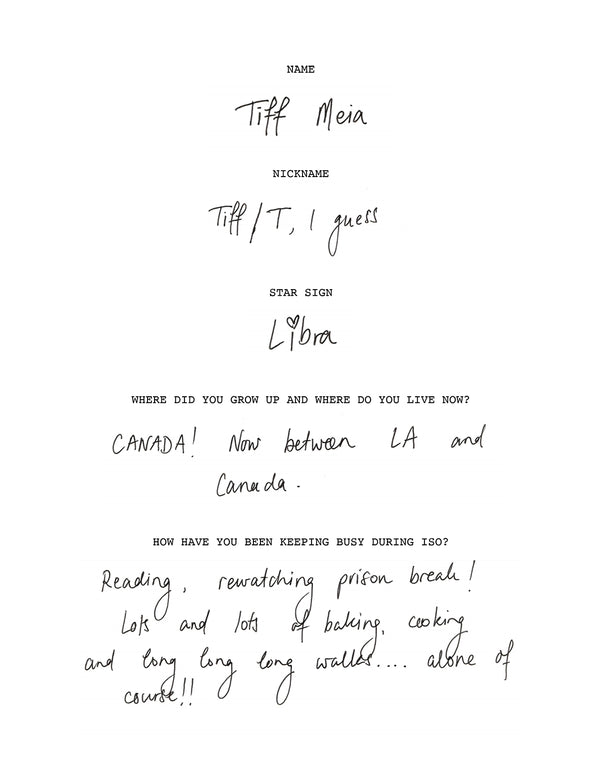 NAME
Tiff Meia
NICKNAME
Tiff/T, I guess
STAR SIGN
Libra
WHERE DID YOU GROW UP AND WHERE DO YOU LIVE NOW?
CANADA! Now between LA and
Canada.
HOW HAVE YOU BEEN KEEPING BUSY DURING ISO?
Reading, rewatching prison break!
Lots and lots of baking, cooking
and long long long walks.... alone of
course!!